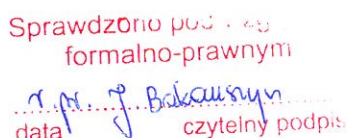 Sprawdzono pod
formalno-prawnym
r.pr. J
data czytelny podpis